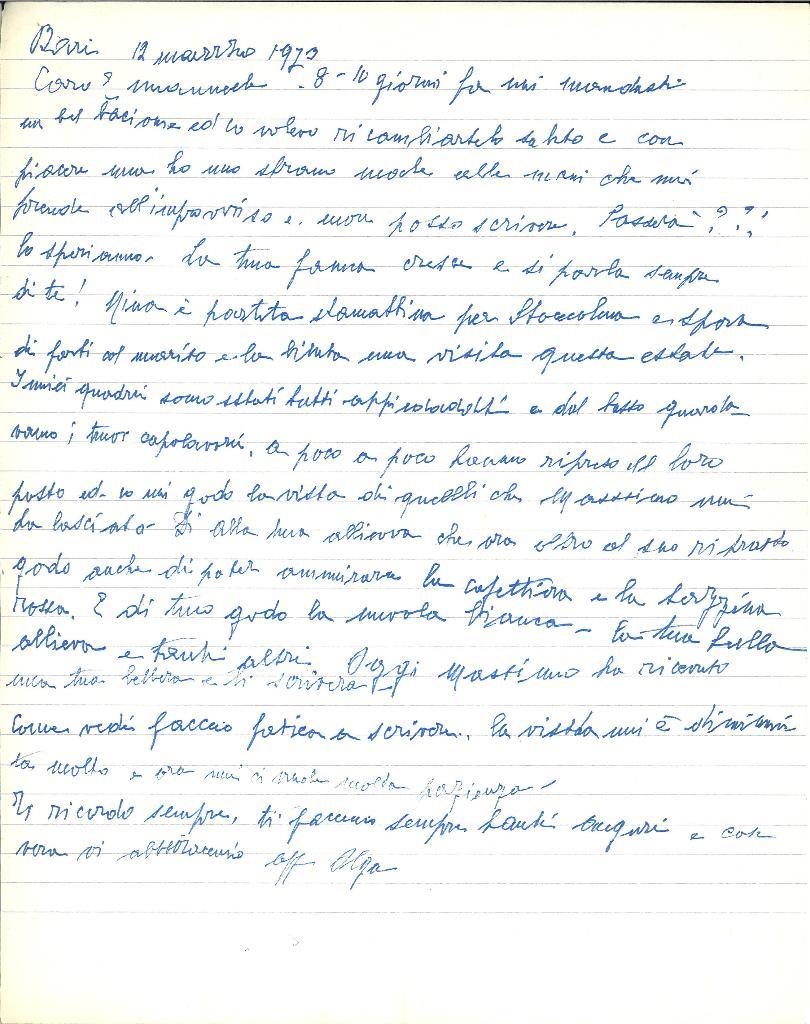 Bari 12 marzo 1973
Caro Emanuele. 8-10 giorni fa mi mandasti
un bel bacione ed io volevo ricambiartelo subito e con
piacere ma ho uno strano male alle mani che mi
prende all'improvviso e non posso scrivere. Passerà???
lo speriamo. La tua fama cresce e si parla sempre
di te! Nina è partita stamattina per Stoccolma e spera
di farti col marito e la bimba una visita questa estate.
I miei quadri sono stati tutti e dal basso guarda
vamo i tuoi capolavori, a poco a poco hanno ripreso il loro
posto ed io mi godo la vista di quelli che Massimo mi
ha lasciato. Di alla tua allieva che ora oltre al suo ritratto
godo anche di poter ammirare la caffettiera e la tazzina
rossa. E di tuo godo la nuvola bianca - la tua bella
allieva e tanti altri. Oggi Massimo ha ricevuto
una tua lettera e ti scriverà
Come vedi faccio fatica a scrivere. la vista mi è diminui
ta molto e ora mi ci vuole molta pazienza -
Ti ricordo sempre, ti faccio sempre tanti auguri e
vi abbraccio aff Olga